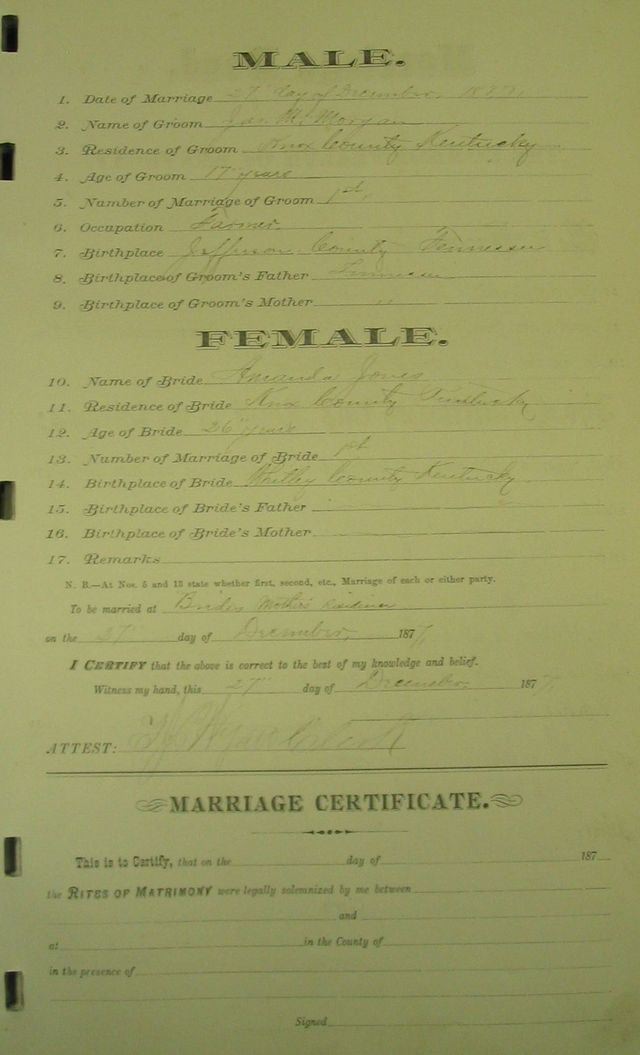 MALE.
1. Date of Marriage 27" day of December, 1877,
2. Name of Groom Jas. M. Morgan
3. Residence of Groom Knox County Kentucky
4. Age of Groom 17 years
5. Number of Marriage of Groom 1st.
6. Occupation Farmer.
7. Birthplace Jefferson County Tennessee
8. Birthplace of Groom's Father Tennessee
9. Birthplace of Groom's Mother "
FEMALE.
10. Name of Bride Amanda Jones
11. Residence of Bride Knox County Kentucky
12. Age of Bride 26 years
13. Number of Marriage of Bride 1st
14. Birthplace of Bride Whitley County Kentucky
15. Birthplace of Bride's Father
16. Birthplace of Bride's Mother
17. Remarks
N. B.—At Nos. 5 and 13 state whether first, second, etc., Marriage of each or either party.
To be married at Brides Mother's Residence
on the 27" day of December, 1877,
I CERTIFY that the above is correct to the best of my knowledge and belief.
Witness my hand, this 27" day of December, 1877,
ATTEST:
MARRIAGE CERTIFICATE.
This is to Certify, that on the day of 187
the RITES OF MATRIMONY were legally solemnized by me between
and
at in the County of
in the presence of
Signed